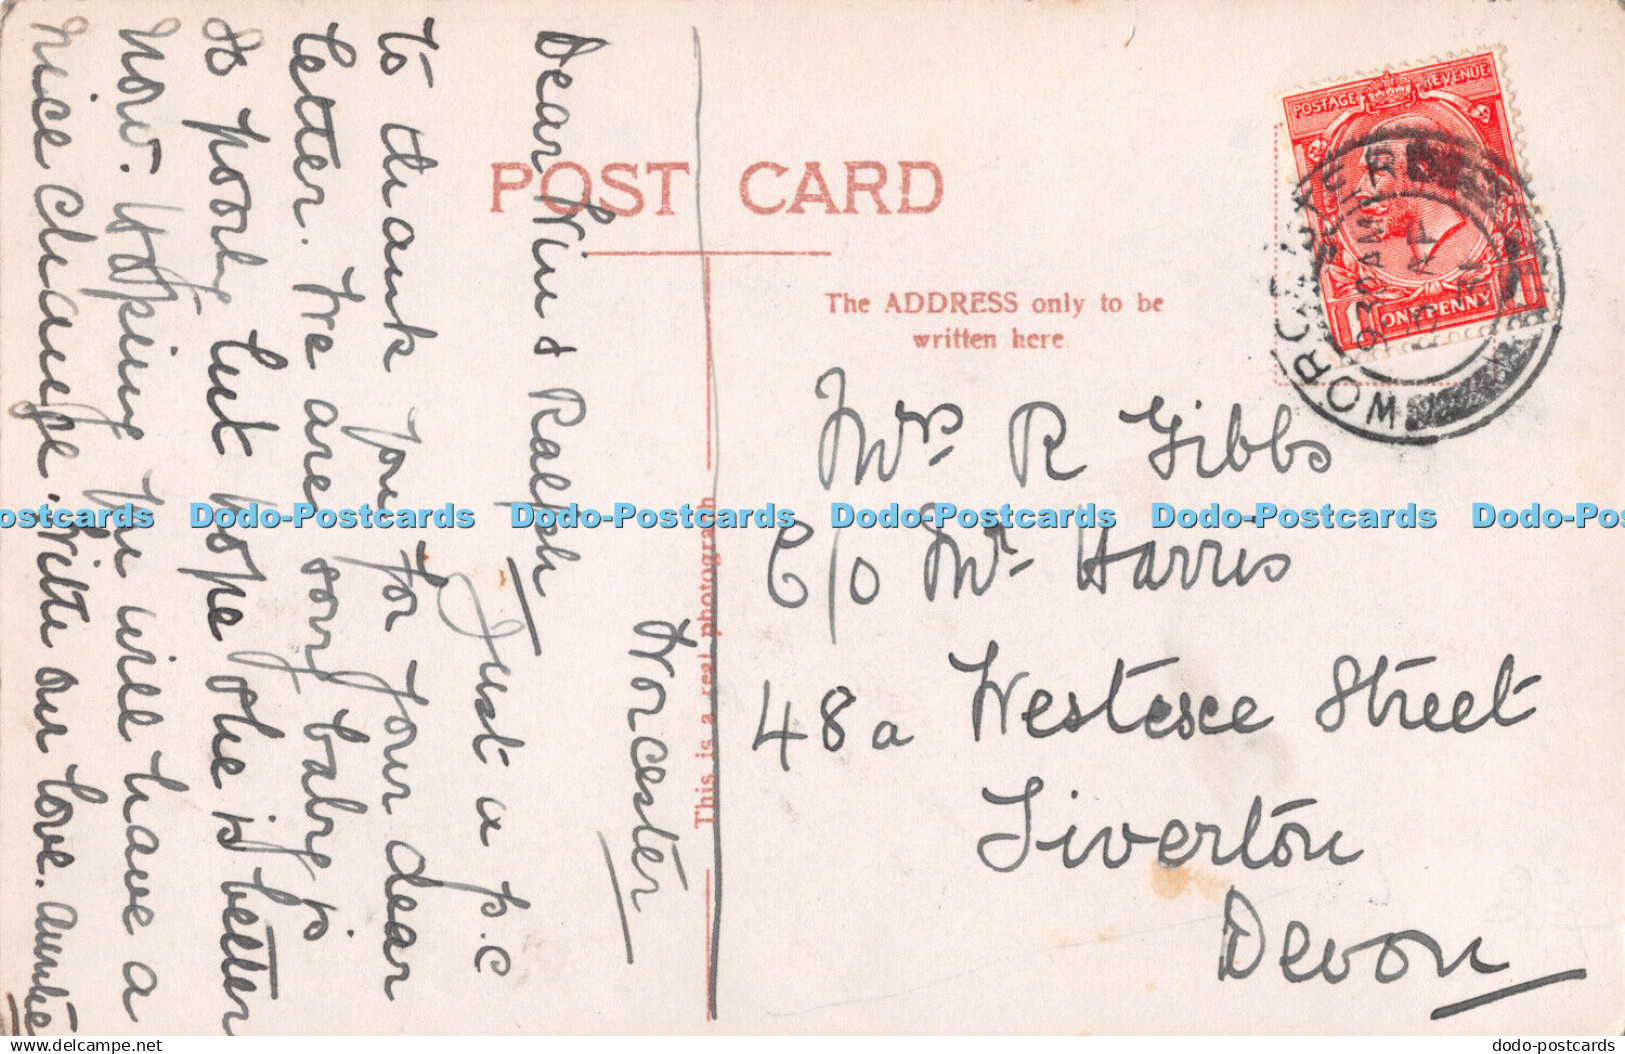 POST CARD
The ADDRESS only to be
written here.
This is a real photograph
POSTAGE REVENUE
ONE PENNY
WORCESTER
9 30 AM
31
Worcester
Dear Win & Ralph
Just a p.c
to thank you for your dear
letter. We are sorry baby is
so poorly but hope she is better
now. Hoping we will have a
nice change. With our love. Auntie
Mrs R Gibbs
C/o Mr Harris
48a Westesce Street
Tiverton
Devon
Dodo-Postcards Dodo-Postcards Dodo-Postcards Dodo-Postcards Dodo-Postcards
delcampe.net
dodo-postcards